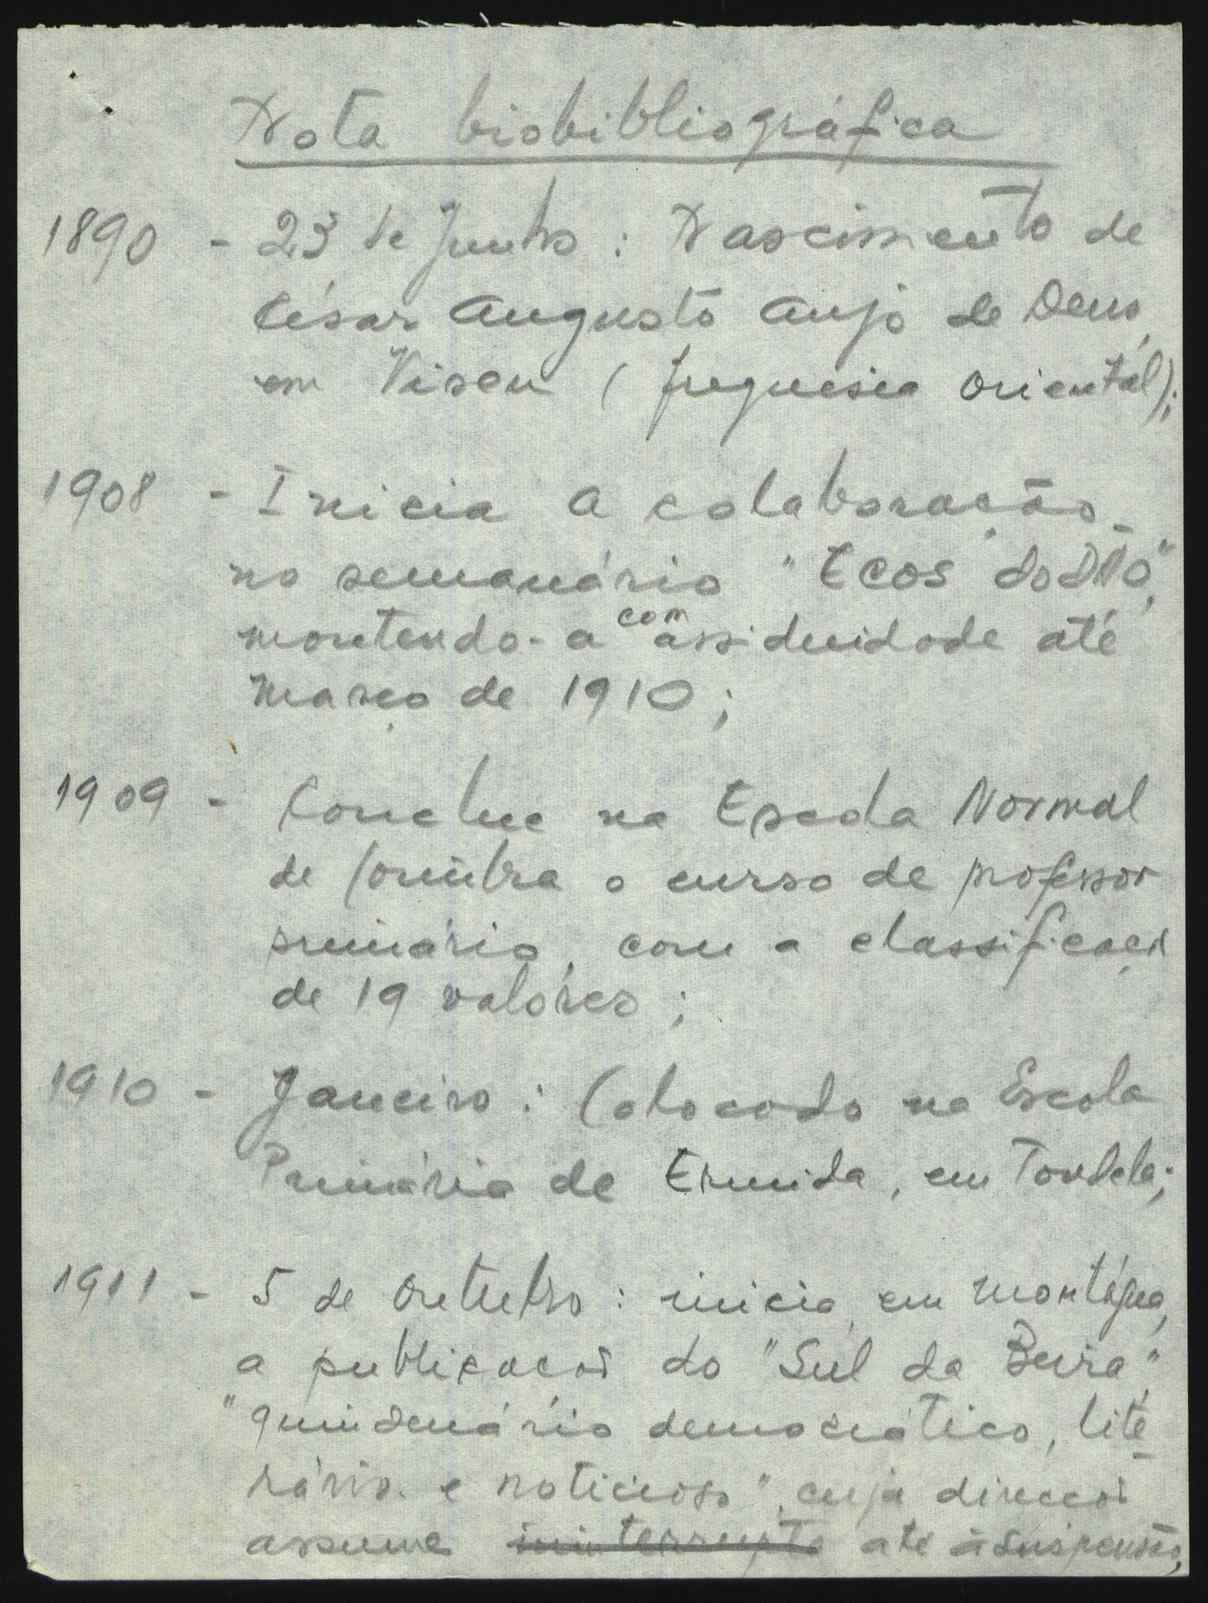 Nota biobibliográfica
1890 - 23 de Junho : Nascimento de
César Augusto Anjo de Deus,
em Viseu (freguesia oriental);
1908 - Inicia a colaboração
no semanário "Ecos do Dão",
mantendo-a com assiduidade até
Março de 1910 ;
1909 - Conclue na Escola Normal
de Coimbra o curso de professor
primário, com a classificação
de 19 valores ;
1910 - Janeiro : Colocado na Escola
Primária de Ermida, em Tondela;
1911 - 5 de Outubro : inicia, em Mortágua,
a publicação do "Sul da Beira",
"quinzenário democrático, lite-
rário e noticioso", cuja direcção
assume ininterrupta até à suspensão,